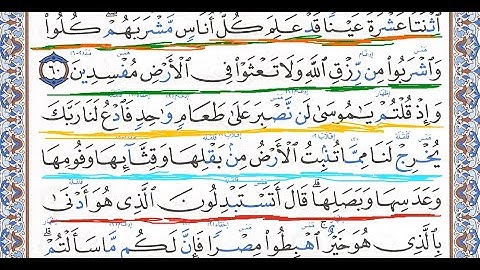 ٱثۡنَتَا عَشۡرَةَ عَيۡنٗاۖ قَدۡ عَلِمَ كُلُّ أُنَاسٖ مَّشۡرَبَهُمۡۖ كُلُواْ
وَٱشۡرَبُواْ مِن رِّزۡقِ ٱللَّهِ وَلَا تَعۡثَوۡاْ فِي ٱلۡأَرۡضِ مُفۡسِدِينَ ٦٠
وَإِذۡ قُلۡتُمۡ يَٰمُوسَىٰ لَن نَّصۡبِرَ عَلَىٰ طَعَامٖ وَٰحِدٖ فَٱدۡعُ لَنَا رَبَّكَ
يُخۡرِجۡ لَنَا مِمَّا تُنۢبِتُ ٱلۡأَرۡضُ مِنۢ بَقۡلِهَا وَقِثَّآئِهَا وَفُومِهَا
وَعَدَسِهَا وَبَصَلِهَاۖ قَالَ أَتَسۡتَبۡدِلُونَ ٱلَّذِي هُوَ أَدۡنَىٰ
بِٱلَّذِي هُوَ خَيۡرٌۚ ٱهۡبِطُواْ مِصۡرٗا فَإِنَّ لَكُم مَّا سَأَلۡتُمۡۗ